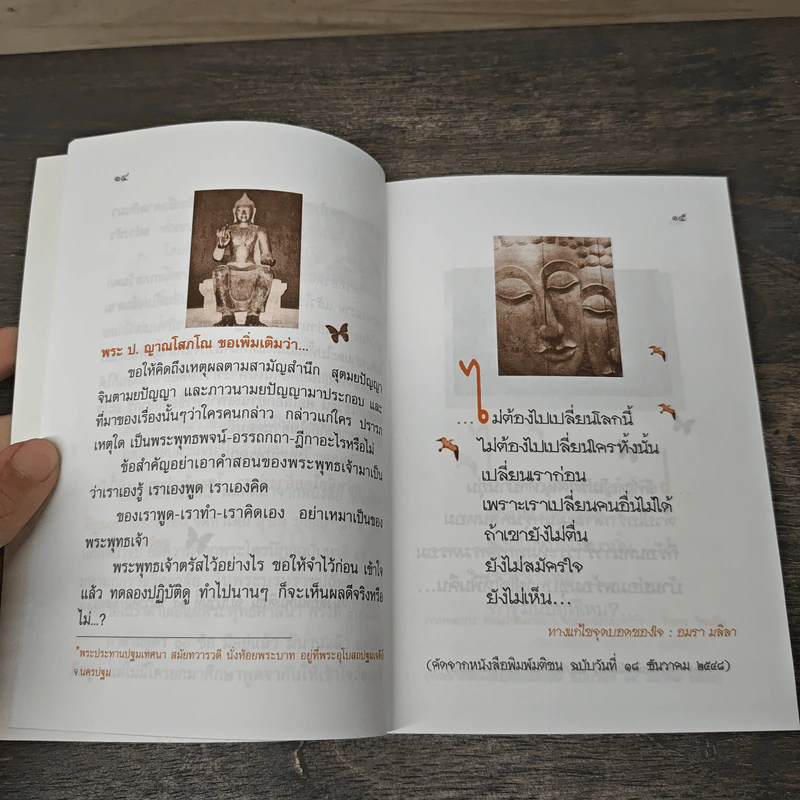 ๑๔
พระ ป. ญาณโสภโณ ขอเพิ่มเติมว่า...
ขอให้คิดถึงเหตุผลตามสามัญสำนึก สุตมยปัญญา
จินตามยปัญญา และภาวนามยปัญญามาประกอบ และ
ที่มาของเรื่องนั้นๆว่าใครคนกล่าว กล่าวแก่ใคร ปรารภ
เหตุใด เป็นพระพุทธพจน์-อรรถกถา-ฎีกาอะไรหรือไม่
ข้อสำคัญอย่าเอาคำสอนของพระพุทธเจ้ามาเป็น
ว่าเราเองรู้ เราเองพูด เราเองคิด
ของเราพูด-เราทำ-เราคิดเอง อย่าเหมาเป็นของ
พระพุทธเจ้า
พระพุทธเจ้าตรัสไว้อย่างไร ขอให้จำไว้ก่อน เข้าใจ
แล้ว ทดลองปฏิบัติดู ทำไปนานๆ ก็จะเห็นผลดีจริงหรือ
ไม่...?
*พระประทานปฐมเทศนา สมัยทวารวดี นั่งห้อยพระบาท อยู่ที่พระอุโบสถปฐมเจดีย์
จ.นครปฐม
๑๕
...ไม่ต้องไปเปลี่ยนโลกนี้
ไม่ต้องไปเปลี่ยนใครทั้งนั้น
เปลี่ยนเราก่อน
เพราะเราเปลี่ยนคนอื่นไม่ได้
ถ้าเขายังไม่ตื่น
ยังไม่สมัครใจ
ยังไม่เห็น...
ทางแก้ไขจุดบอดของใจ : อมรา มลิลา
(คัดจากหนังสือพิมพ์มติชน ฉบับวันที่ ๑๘ ธันวาคม ๒๕๔๘)